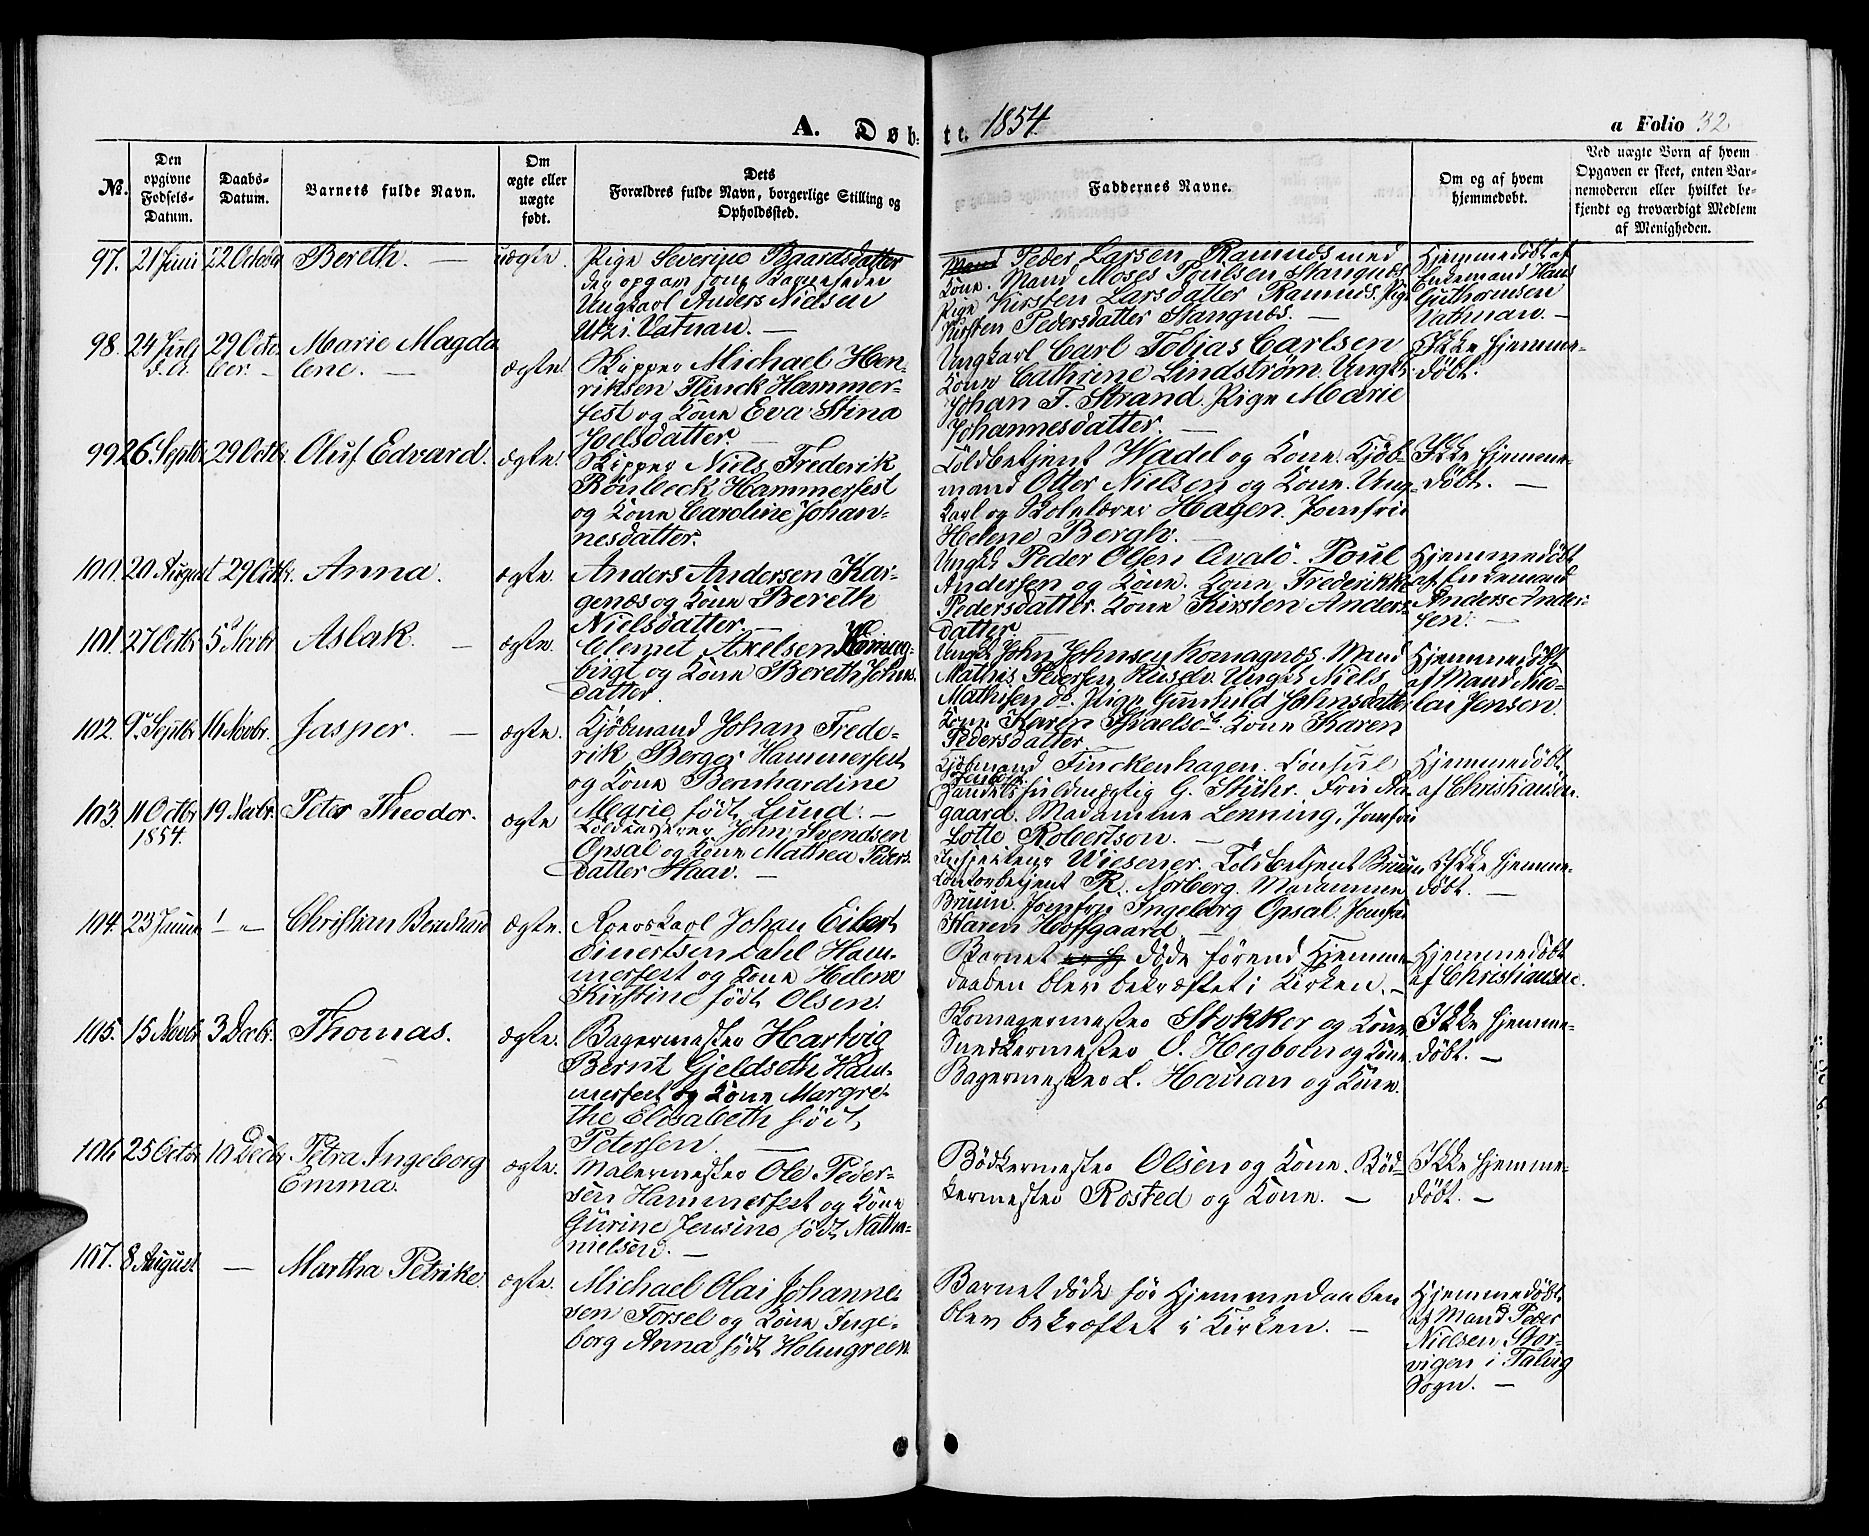 A. Døb: te. 1854.
a Folio 32
No.
Den
opgivne
Fødsels-
Datum.
Daabs-
Datum.
Barnets fulde Navn.
Om
ægte eller
uægte
født.
Dets
Forældres fulde Navn, borgerlige Stilling og
Opholdssted.
Faddernes Navne.
Om og af hvem
hjemmedøbt.
Ved uægte Born af hvem
Opgaven er skeet, enten Bar-
nemoderen eller hvilket be-
kjendt og troværdigt Medlem
af Menigheden.
97. 21 Juni 22 October Bereth. — uægte.
Pige Severine Baardsdatter
der opgav som Barnefader
Ungkarl Anders Nielsen
Utzi. Vatnan. —
Mand Peder Larsen Ramnes med
Kone. Mand Moses Poulsen Stangnæs
Pige Kirsten Larsdatter Ramnes. Pige
Kirsten Pedersdatter Stangnæs. —
Hjemmedøbt af
Endemand Hans
Guthormsen
Vatnan. —
98. 24 Juli d.A. 29 Octo-
ber. — Marie Magda
lene. — ægte.
Skipper Michael Hen-
riksen Finck Hammer-
fest og Kone Eva Stina
Joelsdatter. —
Ungkarl Carl Tobias Carlsen
Kone Cathrine Lindstrøm. Ungk.
Johan F. Strand. Pige Marie
Johannesdatter. —
Ikke hjemme-
døbt.
99 26 Septbr. 29 Octbr. Oluf Edvard. ægte.
Skipper Niels Frederik
Rønbeck Hammerfest
og Kone Caroline Johan-
nesdatter.
Toldbetjent Wadel og Kone. Kjøb-
mand Otter Nielsen og Kone. Ung-
karl og Skolelærer Hagen. Jomfru
Helene Bergh. —
Ikke hjemme-
døbt. —
100. 20 August 29 Octbr. Anna. ægte.
Anders Andersen Kar-
genæs og Kone Bereth
Nielsdatter. —
Ungk. Peder Olsen Qvalö. Poul
Andersen og Kone. Kone Frederikke
Pedersdatter. Kone Kirsten Anders-
datter. —
Hjemmedøbt
af Endemand
Anders Ander-
sen. —
101. 27 Octbr. 5 Novbr. Aslak. — ægte.
Clemet Axelsen Komag-
vigt og Kone Bereth Johns-
datter.
Ungk. John Johnsen Komagnæs. Mand
Mathis Pedersen Kuselv. Ungk. Niels
Mathisen do. Pige Gunhild Johnsdatter
Kone Karen Kone Karen
Pedersdatter.
Hjemmedøbt
af Mand
Jensen.
102. 9 Septbr. 16 Novbr. Jasper. — ægte.
Kjøbmand Johan Frede-
rik Berger Hammerfest
og Kone Bernhardine
Marie født Lund. —
Kjøbmand Finckenhagen. Consul
fuldmægtig G. Stühr. Frue
gaard. Madamme Lenning, Jomfru
Lotte Robertson. —
Hjemmedøbt
af Christiansen.
103. 11 Octbr
1854. 19 Novbr. Peter Theodor. ægte
John Svendsen
Opsal og Kone Mathea Peders-
datter Haav. —
Wiesener. Toldbetjent Bruun
Contorbetjent R. Norberg. Madammen
Bruun. Jomfru Ingeborg Opsal. Jomfru
Karen Hoffgaard. —
Ikke hjemme-
døbt. —
104. 23 Januar ! „ Christian Bernhard ægte.
Roerskarl Johan Eilert
Einertsen Dahl Ham-
merfest og Kone Helene
Kirstine født Olsen.
Barnet døde førend Hjemme-
daaben blev bekræftet i Kirken. —
Hjemmedøbt
af Christiansen.
105. 15 Novbr 3 Decbr. Thomas. ægte.
Bagermester Hartvig
Bernt Gjeldseth Ham-
merfest og Kone Margre-
the Elisabeth født
Petersen —
Skomagermester Stokker og Kone.
Snedkermester O. Hegbom og Kone.
Bagermester L. Hauan og Kone.
Ikke hjemme-
døbt. —
106 25 Octbr 10 Decbr Petra Ingeborg
Emma. ægte.
Malermester Ole Peder-
sen Hammerfest og Kone
Gurine Jensine født Natha-
nielsen. —
Bødkermester Olsen og Kone. Bød-
kermester Rosted og Kone. —
Ikke hjemme-
døbt. —
107. 8 August — Martha Petrike. ægte.
Michael Olai Johanne-
sen Forsel og Kone Inge-
borg Anna født Holmgreen.
Barnet døde før Hjemmedaaben
blev bekræftet i Kirken. —
Hjemmedøbt
af Mand Peder
Nielsen Stor-
vigen i Talvig
Sogn. —